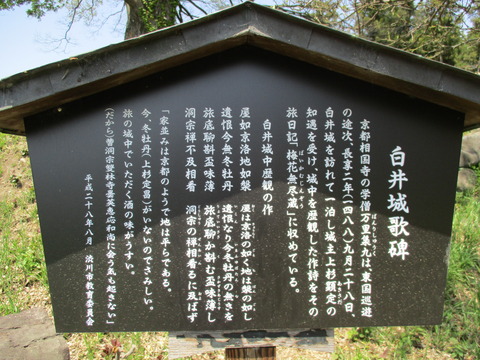 白井城歌碑
京都相国寺の学僧万里集九は、東国巡遊
の途次、長享二年(一四八八)九月二十八日、
白井城を訪れて一泊し城主上杉顕定の
知遇を受け、城中を歴観した作詩をその
旅日記「梅花無尽蔵」に収めている。
ばいかむじんぞう
白井城中歴観の作
屋如京洛地如槃 屋は京洛の如く地は槃の如し
遺恨無冬牡丹 遺恨なり今冬牡丹の無きを
旅底聊斟盃味薄 旅底聊か斟む盃味薄し
洞宗禅不及相看 洞宗の禅相看るに及ばず
「家並みは京都のようで地は平らである。
今、冬牡丹(上杉定昌)がいないのでさみしい。
旅の城中でいただく酒の味がうすい。
(だから)曹洞宗雙林寺曇英恵応和尚に会う気も起きない」
平成二十八年八月 渋川市教育委員会